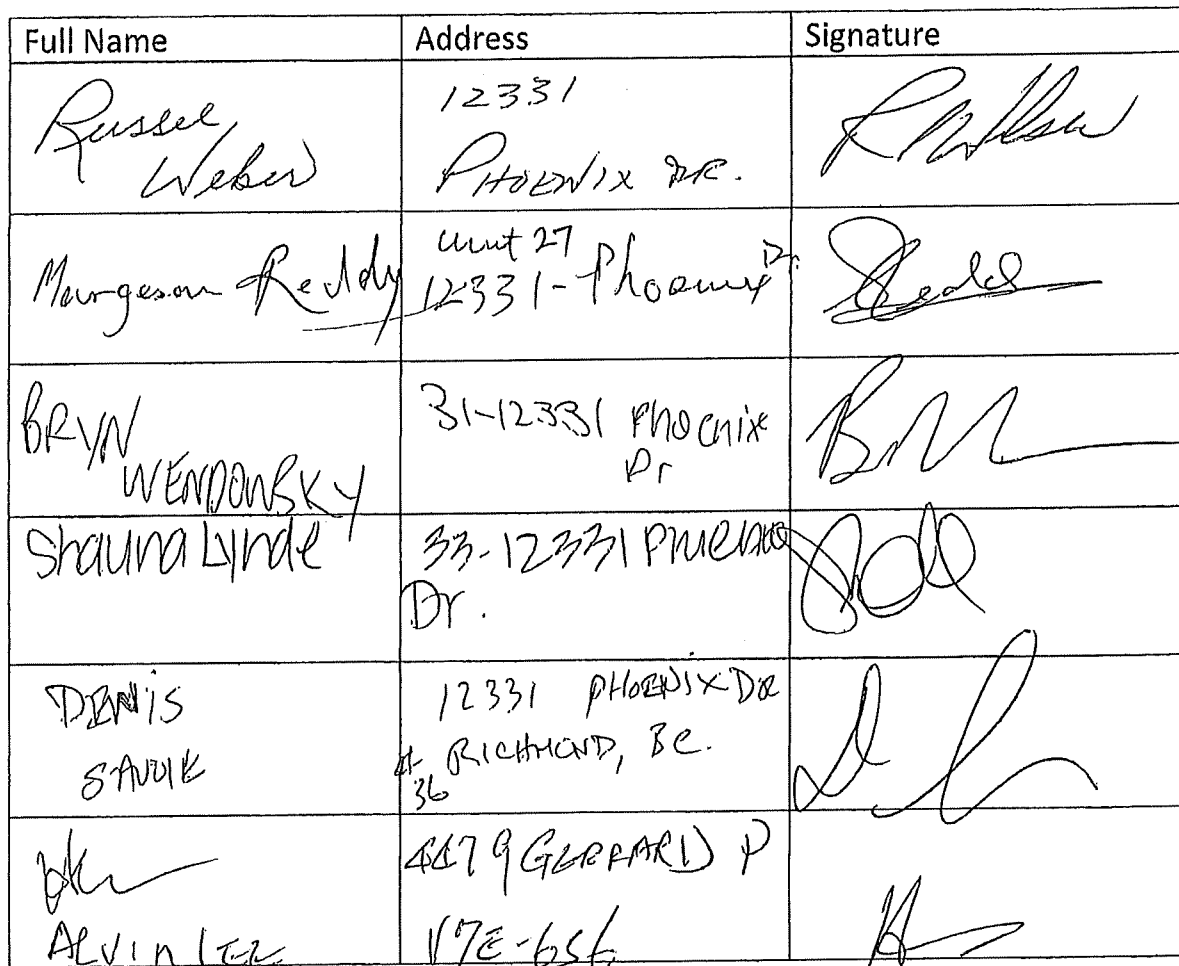 Full Name Address Signature
Russel
Weber
12331
PHOENIX DR.
Reddy
Unit 27
12331-Phoenix Dr.
BRYN
WENDOWSKY
31-12331 Phoenix
Dr
Shauna Lynde
33-12331
Dr.
DENIS
SAVOIE
12331 PHOENIX DR
# 36 RICHMOND, BC.
ALVIN LEE
4479 GERRARD P
V7E-6S6